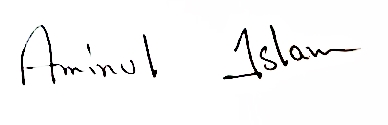 Aminul Islam